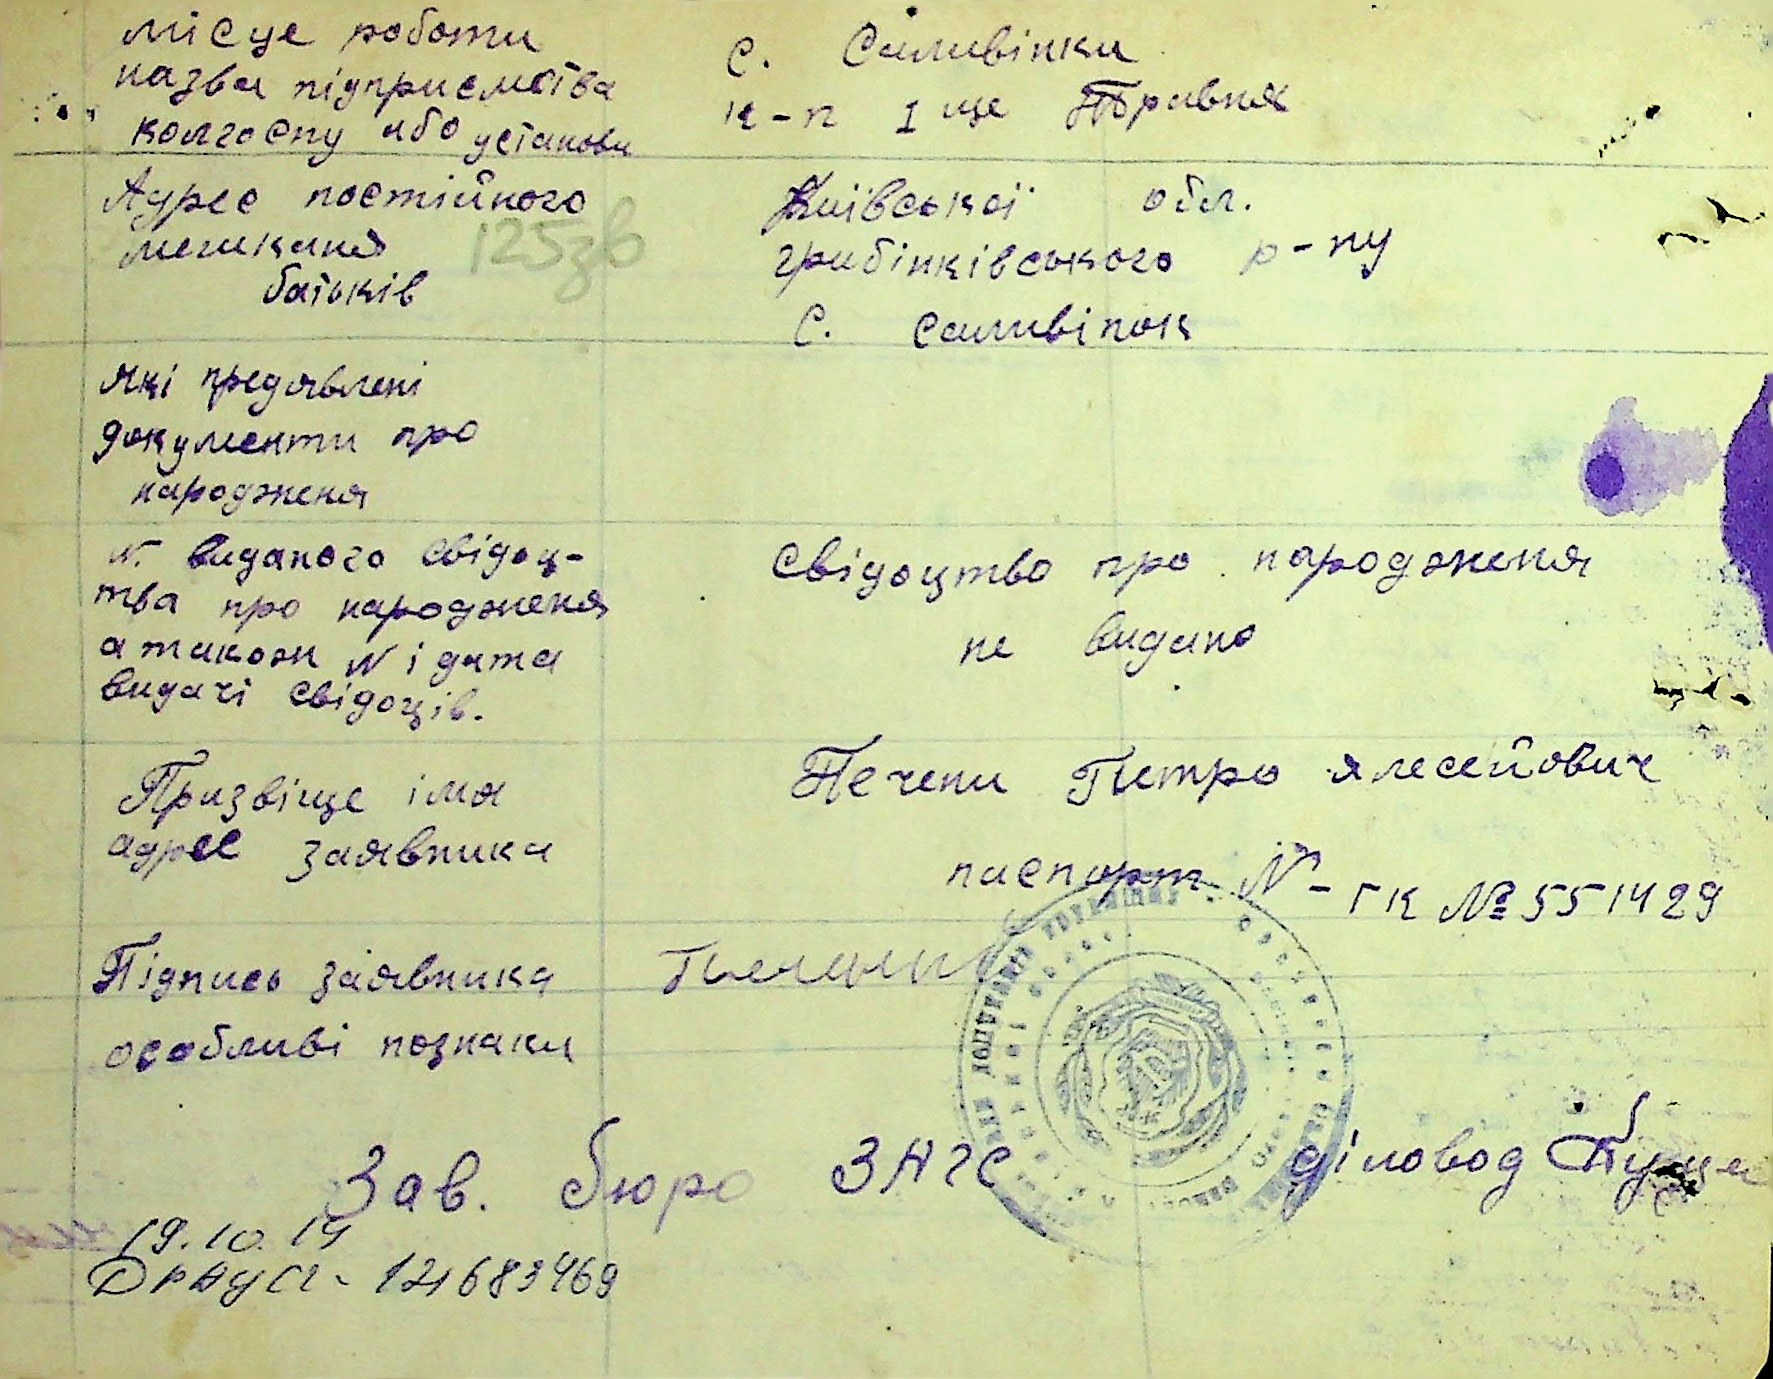 місце роботи
назва підприємства
колгоспу або установи
с. Саливінки
к-п 1 ще Травня
Адрес постійного
мешканя
батьків
125зв
Київської обл.
гребінківського р-ну
с. саливінок
які предявлені
документи про
народженя
N. виданого свідоц-
тва про народженя
а також N і дата
видачі свідоців.
свідоцтво про народженя
не видано
Призвіще імя
адрес заявника
Печени Петро алесейович
паспорт N- ГК № 551429
Підпись заявника
Печени
особливі познаки
Зав. бюро ЗАГС діловод
19.10.14
ДРАЦС - 121683469